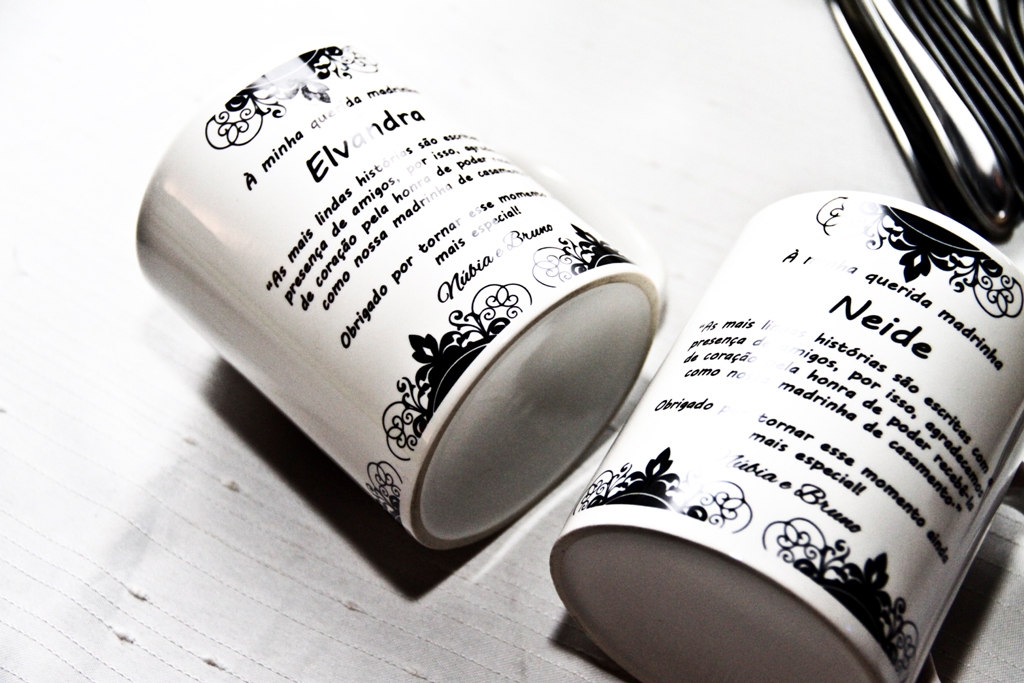 À minha querida madrinha
Elvandra
"As mais lindas histórias são escritas
presença de amigos, por isso,
de coração pela honra de poder
como nossa madrinha de
Obrigado por tornar esse momento
mais especial!
Núbia e Bruno
À minha querida madrinha
Neide
"As mais lindas histórias são escritas com
presença de amigos, por isso, agradecemos
de coração pela honra de poder recebê-la
como nossa madrinha de casamento."
Obrigado por tornar esse momento ainda
mais especial!
Núbia e Bruno